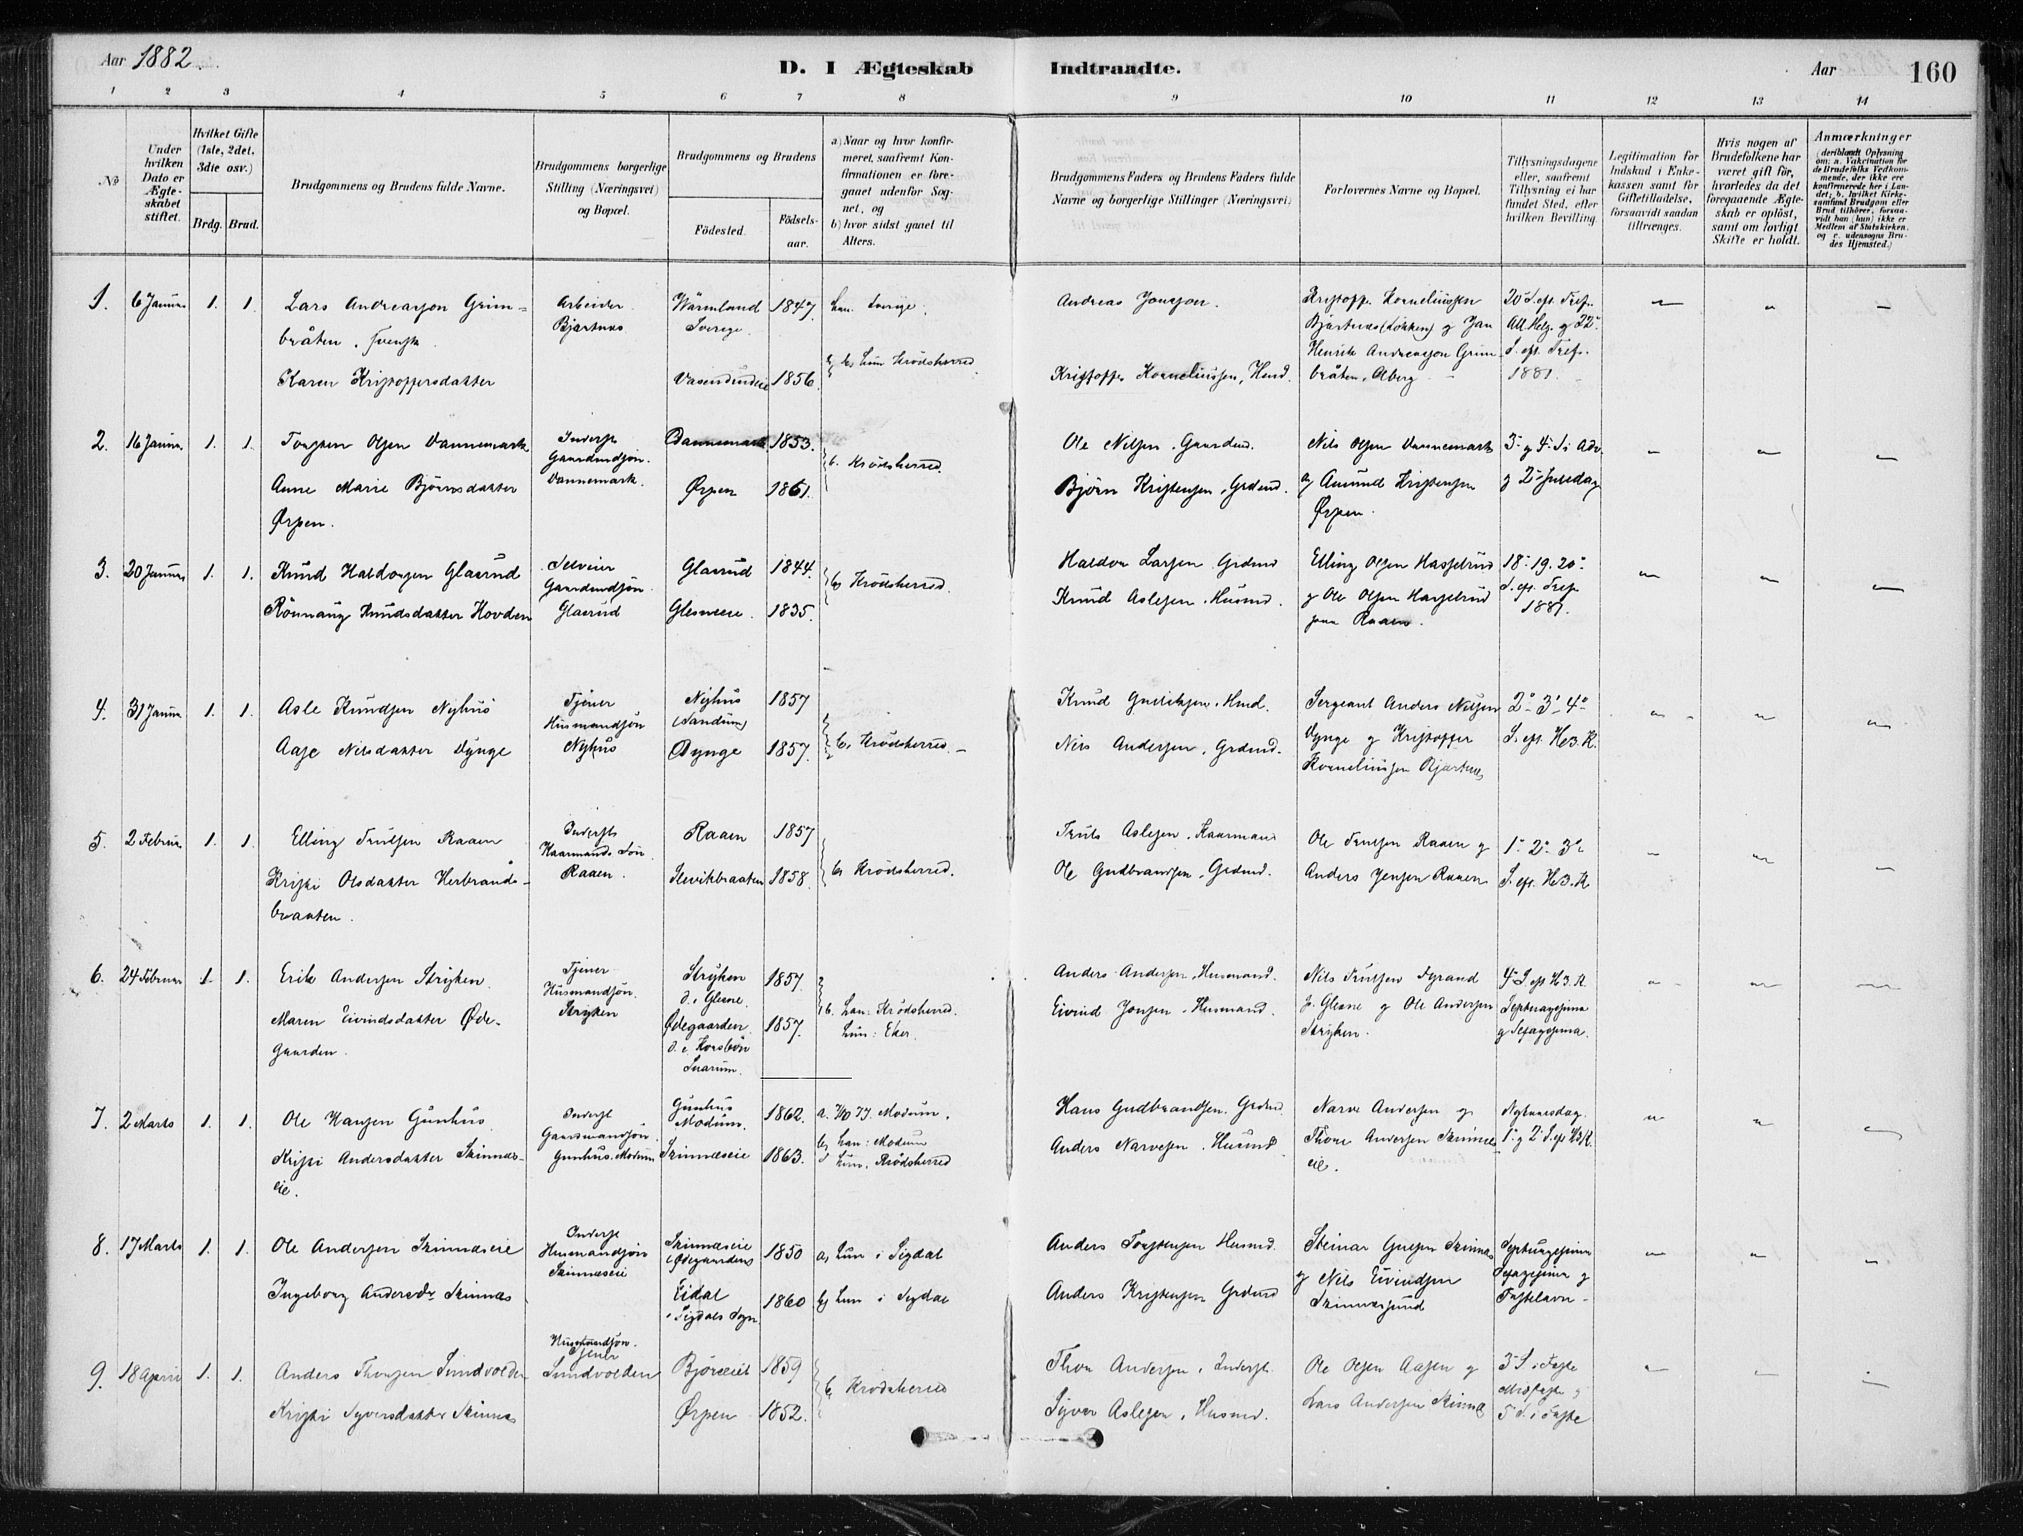 Aar 1882.
D. I Ægteskab Indtraadte.
Aar 160
1 2 3 4 5 6 7 8 9 10 11 12 13 14
No
Under hvilken Dato er Ægteskabet stiftet.
Hvilket Gifte (1ste, 2det, 3die osv.)
Brdg. Brud.
Brudgommens og Brudens fulde Navne.
Brudgommens borgerlige Stilling (Næringsvei) og Bopæl.
Brudgommens og Brudens
Födested.
Födsels-aar.
a) Naar og hvor konfirmeret, saafremt Konfirmationen er foregaaet udenfor Sognet, og
b) hvor sidst gaaet til Alters.
Brudgommens Faders og Brudens Faders fulde Navne og borgerlige Stillinger (Næringsvei)
Forlovernes Navne og Bopæl.
Tillysningsdagene eller, saafremt Tillysning ei har fundet Sted, efter hvilken Bevilling.
Legitimation for Indskud i Enkekassen samt for Giftetilladelse, forsaavidt saadan tiltrænges.
Hvis nogen af Brudefolkene har været gift för, hvorledes da det foregaaende Ægteskab er oplöst, samt om lovligt Skifte er holdt.
Anmærkninger
(deriblandt Oplysning om: a. Vakcination for de Brudefolks Vedkommende, der ikke ere konfirmerede her i Landet; b. hvilket Kirkesamfund Brudgom eller Brud tilhörer, forsaavidt han (hun) ikke er Medlem af Statskirken, og c. udensogns Brudes Hjemsted.)
1. 6 Januar 1. 1. Lars Andreasson Grimbråten, svensk Arbeider Bjørtnes Wärmland Sverige 1847 han Sverige. Andreas Jonsson. Kristoff. Korneliussen Bjørtnæs (Løkken) og Jan Henrik Andreasson Grimbråten, Aberg 20 S. eft. Tref. All. Helg. og 22 S. eft. Tref. 1881.
Karen Kristoffersdatter 1856 b, hun Krødsherred Kristoffer Korneliussen, Husd.
2. 16 Januar 1. 1. Torsten Olsen Dannemark Inderst Gaardmdsøn. Dannemark. Dannemark 1853. b. Krødsherred. Ole Nilsen, Gaardmd. Nils Olsen Dannemark og Amund Kristensen Ørpen. 3 og 4 S. i Adv. og 2 Juledag
Anne Marie Bjørnsdatter Ørpen. Ørpen 1861. Björn Kristensen, Grdmd.
3. 20 Januar 1. 1. Knud Haldorsen Glasrud Selveier Gaardmdsøn. Glasrud Glasrud 1844. b, Krødsherred. Haldor Larsen Grdmd Elling Olsen Hasselrud og Ole Olsen Hasselrud paa Raaen. 18. 19. 20 S. eft. Tref. 1881.
Rönnaug Knudsdatter Hovden Glesneeie. 1835. Knud Aslesen, Husmd.
4. 31 Januar 1. 1. Asle Knudsen Nyhus Tjener Husmandsøn Nyhus Nyhus (Sandum) 1857 b, Krødsherred. Knud Gulliksen, Husmd. Sergeant Anders Nilsen Dynge og Kristoffer Korneliussen Bjørtnes 2 3 4 S. eft. H3K.
Aase Nilsdatter Dynge Dynge 1857. Nils Andersen, Grdmd.
5. 2 Februar 1. 1. Elling Trulsen Raaen Inderst Kaarmands Søn Raaen. Raaen 1857 b, Krødsherred. Truls Aslesen, Kaarmand Ole Trulsen Raaen og Anders Jensen Raaen 1 2 3 S. eft. H3K
Kristi Olsdatter Herbrandsbraaten. 1858. Ole Gudbrandsen, Grdmd.
6. 24 Februar 1. 1. Erik Andersen Stryken. Tjener Husmandsøn. Stryken Stryken i Glesne 1857. b. han: Krødsherred. Anders Andersen, Husmand. Nils Trulsen Fyrand p. Glesne og Ole Andersen Stryken. 4 S. eft H3K. Septuagesima og Sexagesima.
Maren Eivindsdatter Ødegaarden. Ødegaarden. Snarum. 1857. hun: Eker. Eivind Jonsen, Husmand.
7. 2 Marts 1. 1. Ole Hansen Gunhus Inderst Gaardmandsøn Gunhus, Modum Gunhus Modum. 1862. a. Modum. Hans Gudbrandsen. Grdmd Narve Andersen og Thore Andersen Skinneseie. Nytaarsdag. 1 og 2 S. eft H3K
Kristi Andersdatter Skinneseie. Skinnæseie 1863. b, han: Modum hun, Krødsherred Anders Narvesen, Husmd
8. 17 Marts 1. 1. Ole Andersen Skinnæseie Inderst Husmandsøn Skinnæseie Skinnæseie (Ødegaarden) 1850 a, hun i Sigdal Anders Torstensen Husmd. Steinar Skinnæs og Nils Eivindsen Skinnæs Septuagesima Sexagesima og Fastelavn
Ingeborg Andersdr Skinnæs Eidal i Sigdals Sogn 1860 b, hun i Sigdal Anders Kristensen Grdmd
9. 18 April 1. 1. Anders Thorsen Sundvolden Husmandsøn. Tjener Sundvolden Bjøreeiet 1859 b, Krødsherred Thor Andersen, Inderst. Ole Olsen Aasen og Lars Andersen Skinnæs 3 S. i Faste Midfaste og 5 S. i Faste
Kristi Syversdatter Skinnes Ørpen 1852. Syver Aslesen, Husmd.